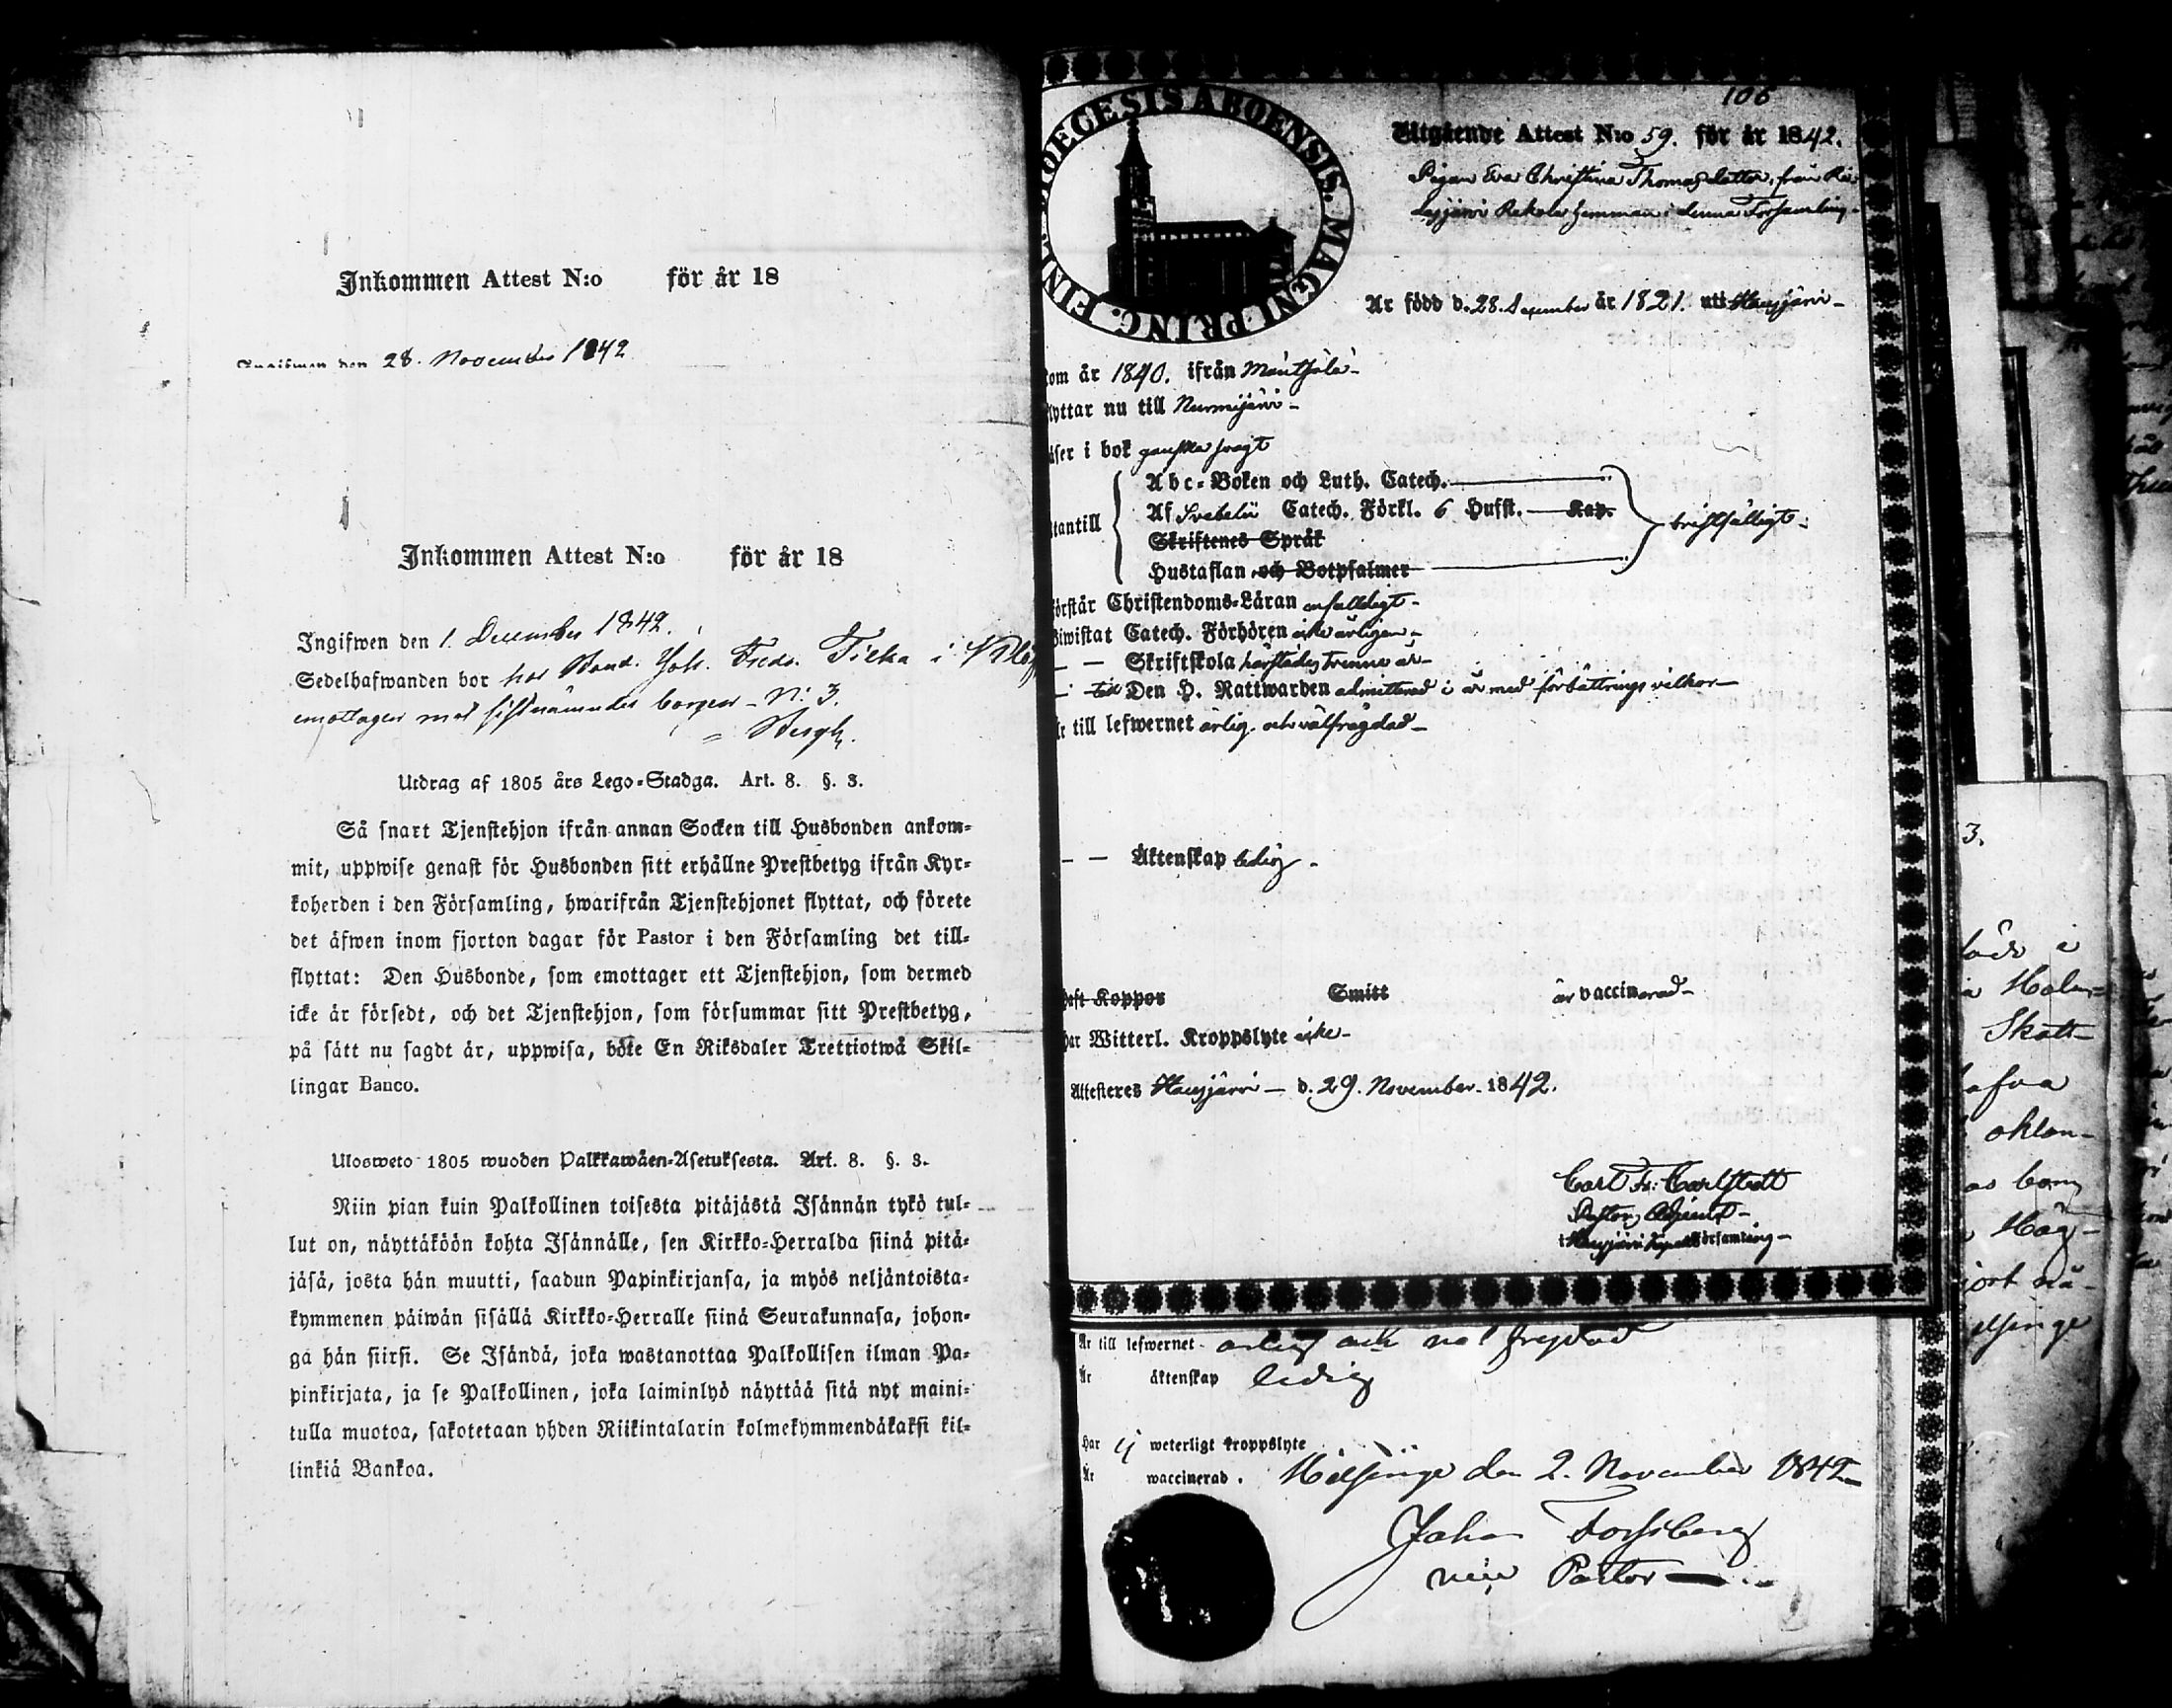 Inkommen Attest N:o för år 18
Ingifwen den 28. November 1842
Inkommen Attest N:o för år 18
Ingifwen den 1. December 1842.
Sedelhafwanden bor hos Bond. Joh. Fredr. i
emottages med sistnämndes borgen – N: 3.
Bergh.
Utdrag af 1805 års Lego-Stadga. Art. 8. §. 3.
Så snart Tjenstehjon ifrån annan Socken till Husbonden ankom-
mit, uppwise genast för Husbonden sitt erhållne Prestbetyg ifrån Kyr-
koherden i den Församling, hwarifrån Tjenstehjonet flyttat, och förete
det äfwen inom fjorton dagar för Pastor i den Församling det till-
flyttat: Den Husbonde, som emottager ett Tjenstehjon, som dermed
icke är försedt, och det Tjenstehjon, som försummar sitt Prestbetyg,
på sätt nu sagdt är, uppwisa, böte En Riksdaler Trettiotwå Skil-
lingar Banco.
Ulosweto 1805 wuoden Palkkawäen-Asetuksesta. Art. 8. §. 3.
Niin pian kuin Palkollinen toisesta pitäjästä Isännän tykö tul-
lut on, näyttäköön kohta Isännälle, sen Kirkko-Herralda siinä pitä-
jäsä, josta hän muutti, saadun Papinkirjansa, ja myös neljäntoista-
kymmenen päiwän sisällä Kirkko-Herralle siinä Seurakunnasa, johon-
ga hän siirsi. Se Isändä, joka wastanottaa Palkollisen ilman Pa-
pinkirjata, ja se Palkollinen, joka laiminlyö näyttää sitä nyt maini-
tulla muotoa, sakotetaan yhden Riikintalarin kolmekymmendäkaksi kil-
linkiä Bankoa.
106
DIOECESIS ABOENSIS. MAGNI PRINC. FINL.
Utgående Attest N:o 59. för år 1842.
Pigan Eva Christina Thomasdotter, från
Rekola hemman i denna Församling.
Är född d. 28. December år 1821. uti Hausjärvi
kom år 1840. ifrån Mäntsälä
flyttar nu till Nurmijärvi
läser i bok ganska svagt
Abc-Boken och Luth. Catech.
utantill Af Svebelii Catech. Förkl. 6 Hufst. Kap. bristfälligt
Skriftenes Språk
Hustaflan och Botpsalmer
förstår Christendoms-Läran enfaldigt
biwistat Catech. Förhören icke årligen
— — Skriftskola härstädes trenne år
— till Den H. Nattwarden admitterad i år med förbättrings vilkor
är till lefwernet ärlig och välfrägdad
— — Äktenskap ledig
haft Koppor Smitt är vaccinerad
har Witterl. Kroppslyte icke
Attesteres Hausjärvi d. 29. November 1842.
Carl Fr: Carlstedt
Pastors Adjunct
i Hausjärvi Kapell Församling
Är till lefwernet ärlig och väl frejdad
Är äktenskap ledig
Har ej weterligt kroppslyte
Är waccinerad. Helsinge den 2. November 1842
Johan Forssberg
vice Pastor
3.
i
Skatt-